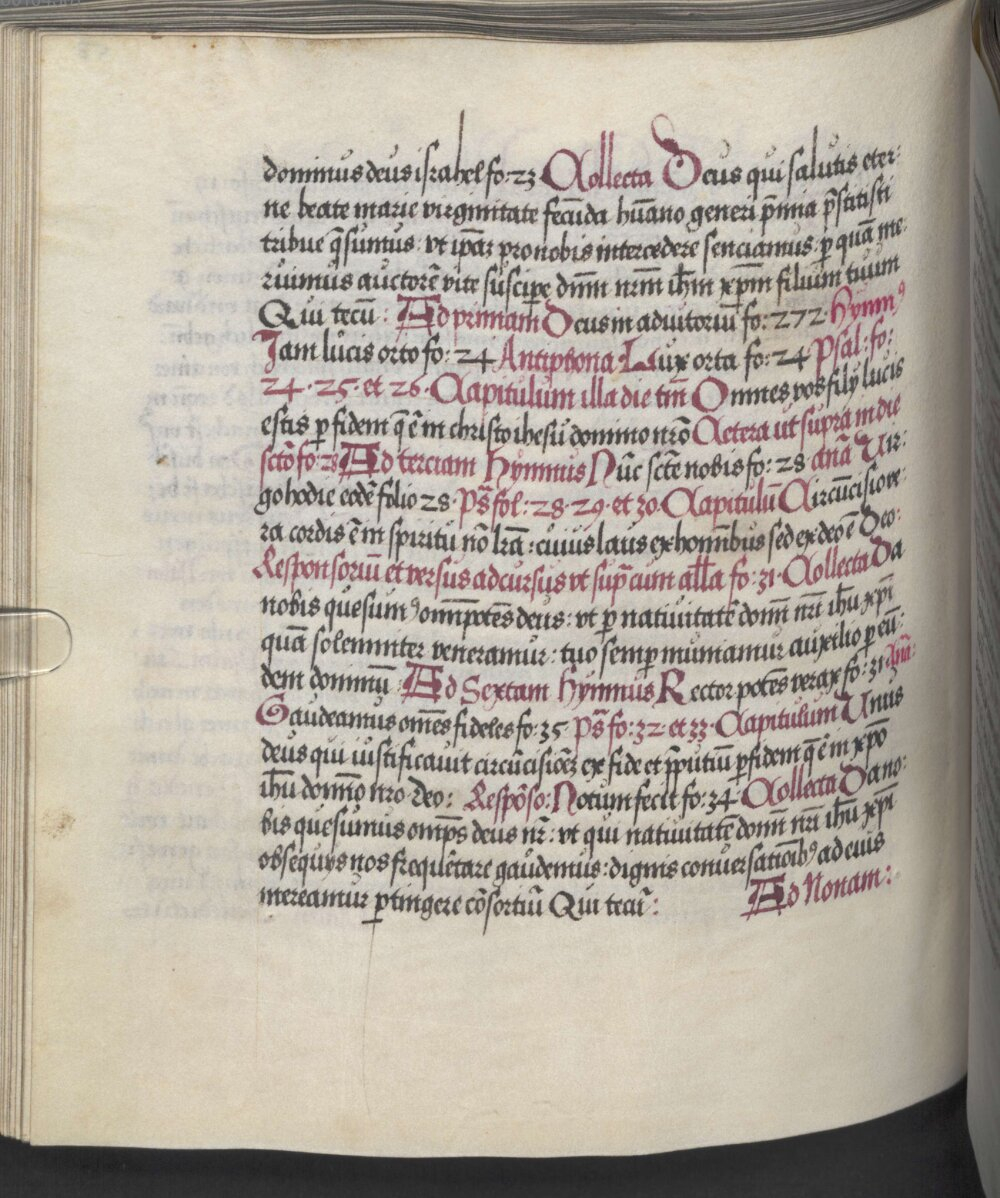 dominus deus israhel fo: 23 Collecta Deus qui salutis eter:
ne beate marie virginitate fecūda hūano generi p̄mia p̄stitisti
tribue q̄sumus: vt ip̄aꝫ pro nobis intercedere senciamus: ꝑ quā me:
ruimus auctorē vite suscipe dn̄m nr̄m ih̄m xp̄m filium tuum
Qui tecū: Ad primam Deus in adiutoriū fo: 272 Hymnꝰ
Iam lucis orto fo: 24 Antiphona Lux orta fo: 24 Psal: fo:
24 · 25 · et 26 · Capitulum illa die tm̄ Omnes vos filÿ lucis
estis ꝑ fidem q̄ ē in christo ihesū domino nr̄o Cetera ut supra in die
sctō fo: 23 Ad terciam Hymnus Nūc sct̄e nobis fo: 28 anā Vir:
go hodie eodē folio 28 · ps̄ fol: 28 · 29 · et 30 · Capitulū Circūcisio ve:
ra cordis ē in spiritu nō lr̄a: cuius laus ex hom̄ibus sed ex deo ē Deo:
Responsoriū et versus ad cursus vt sup̄ cum all̄a fo: 31 · Collecta Da
nobis quesumꝰ om̄ipotēs deus: vt ꝑ natiuitatē domī nr̄i ih̄u xp̄i
quā solemniter veneramur: tuo semꝑ muniamur auxilio ꝑ eū:
dem dominū Ad Sextam Hymnus Rector potēs verax fo: 31 Anā:
Gaudeamus om̄es fideles fo: 35 ps̄ fo: 32 · et 33 · Capitulum Vnus
deus qui iustificauit circūcisiōeꝫ ex fide et p̄putiū ꝑ fidem q̄ ē in xp̄o
ih̄u dom̄o nr̄o Deo: Respōso: Notum fecit fo: 34 · Collecta Da no:
bis quesumus omp̄s deus nr̄: vt qui natiuitatē domī nr̄i ih̄u xp̄i
obsequÿs nos frequētare gaudemus: dignis conuersatiōibꝰ ad eius
mereamur ꝑtingere cōsortiū Qui tecū:
Ad Nonam: